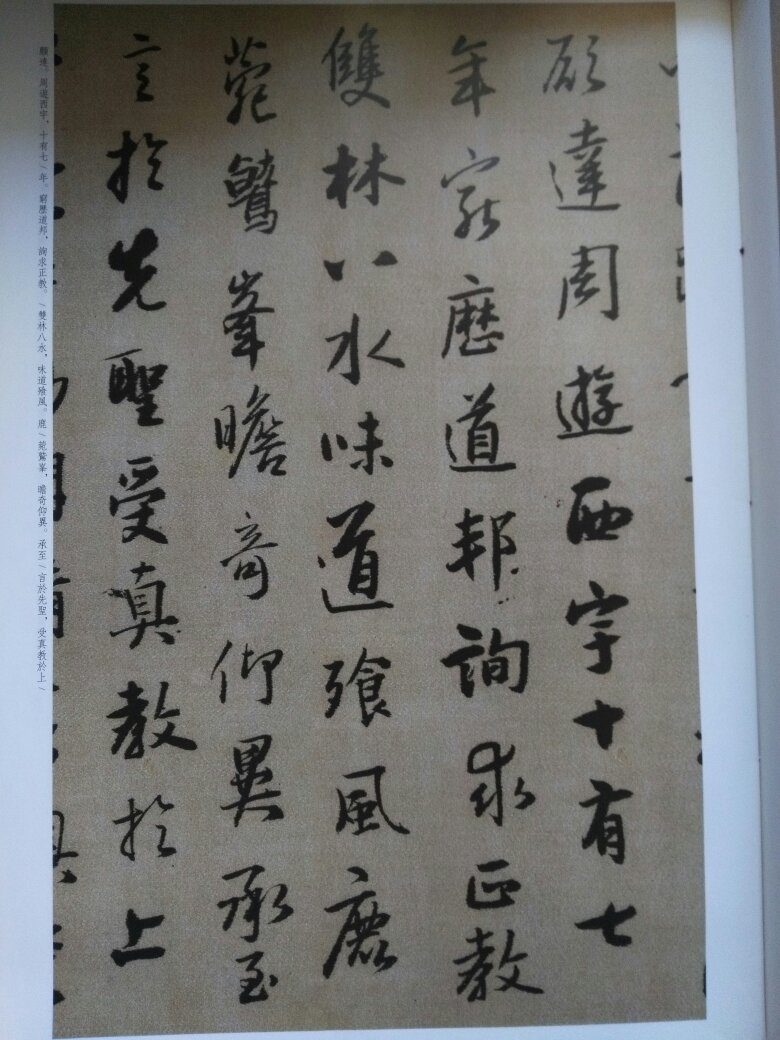 願達周遊西宇十有七
年窮歷道邦詢求正教
雙林八水味道飱風鹿
菀鷲峯瞻奇仰異承至
言於先聖受真教於上
願達。周遊西宇，十有七／年。窮歷道邦，詢求正教。／雙林八水，味道飱風。鹿／菀鷲峯，瞻奇仰異。承至／言於先聖，受真教於上／